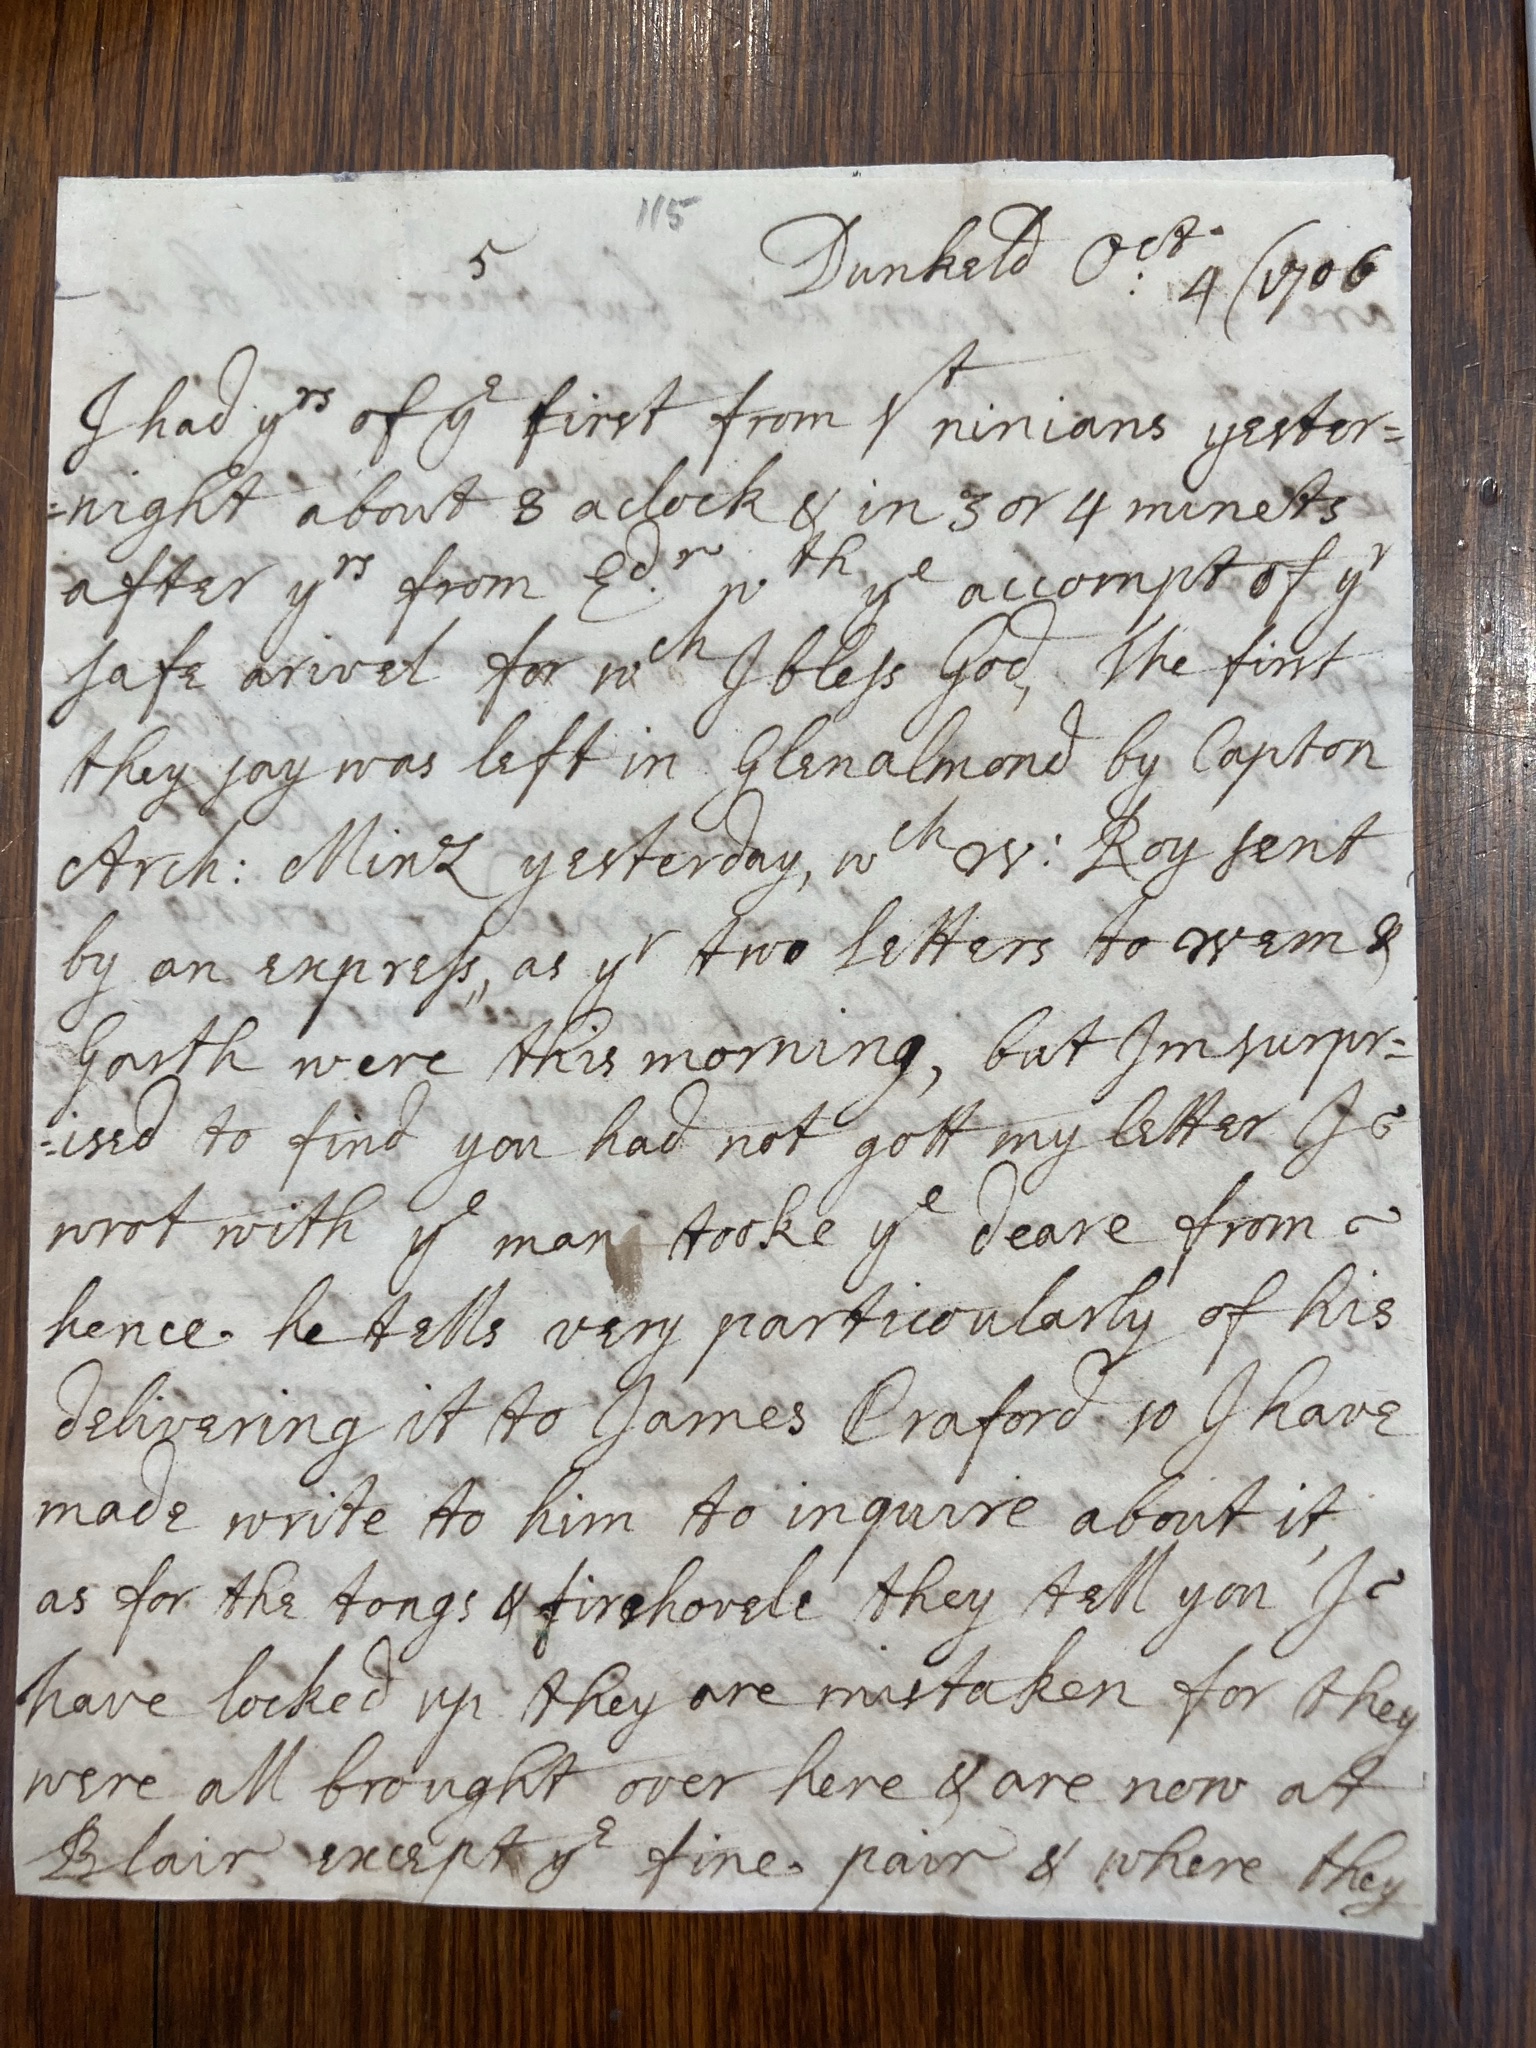 115
5 Dunkeld Oct: 4 (1706
I had yrs of ye first from St ninians yester=
=night about 8 aclock & in 3 or 4 minets
after yrs from Edr wth ye accompt of yr
safe arivel for wch I bless God, The first
they say was left in Glenalmond by Capton
Arch: Minz yesterday, wch W: Roy sent
by an express, as yr two letters to Wem &
Garth were this morning, but Im surpr=
=ised to find you had not gott my letter I
wrot with ye man tooke ye deare from
hence. he tells very particoularly of his
delivering it to James Craford so I have
made write to him to inquire about it,
as for the tongs & fireshovele they tell you I
have locked up they are mistaken for they
were all brought over here & are now at
Blair except ye fine pair & where they